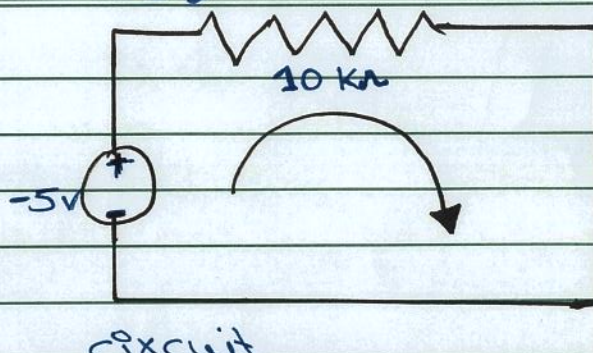 10 KΩ
+
-5v
-
circuit